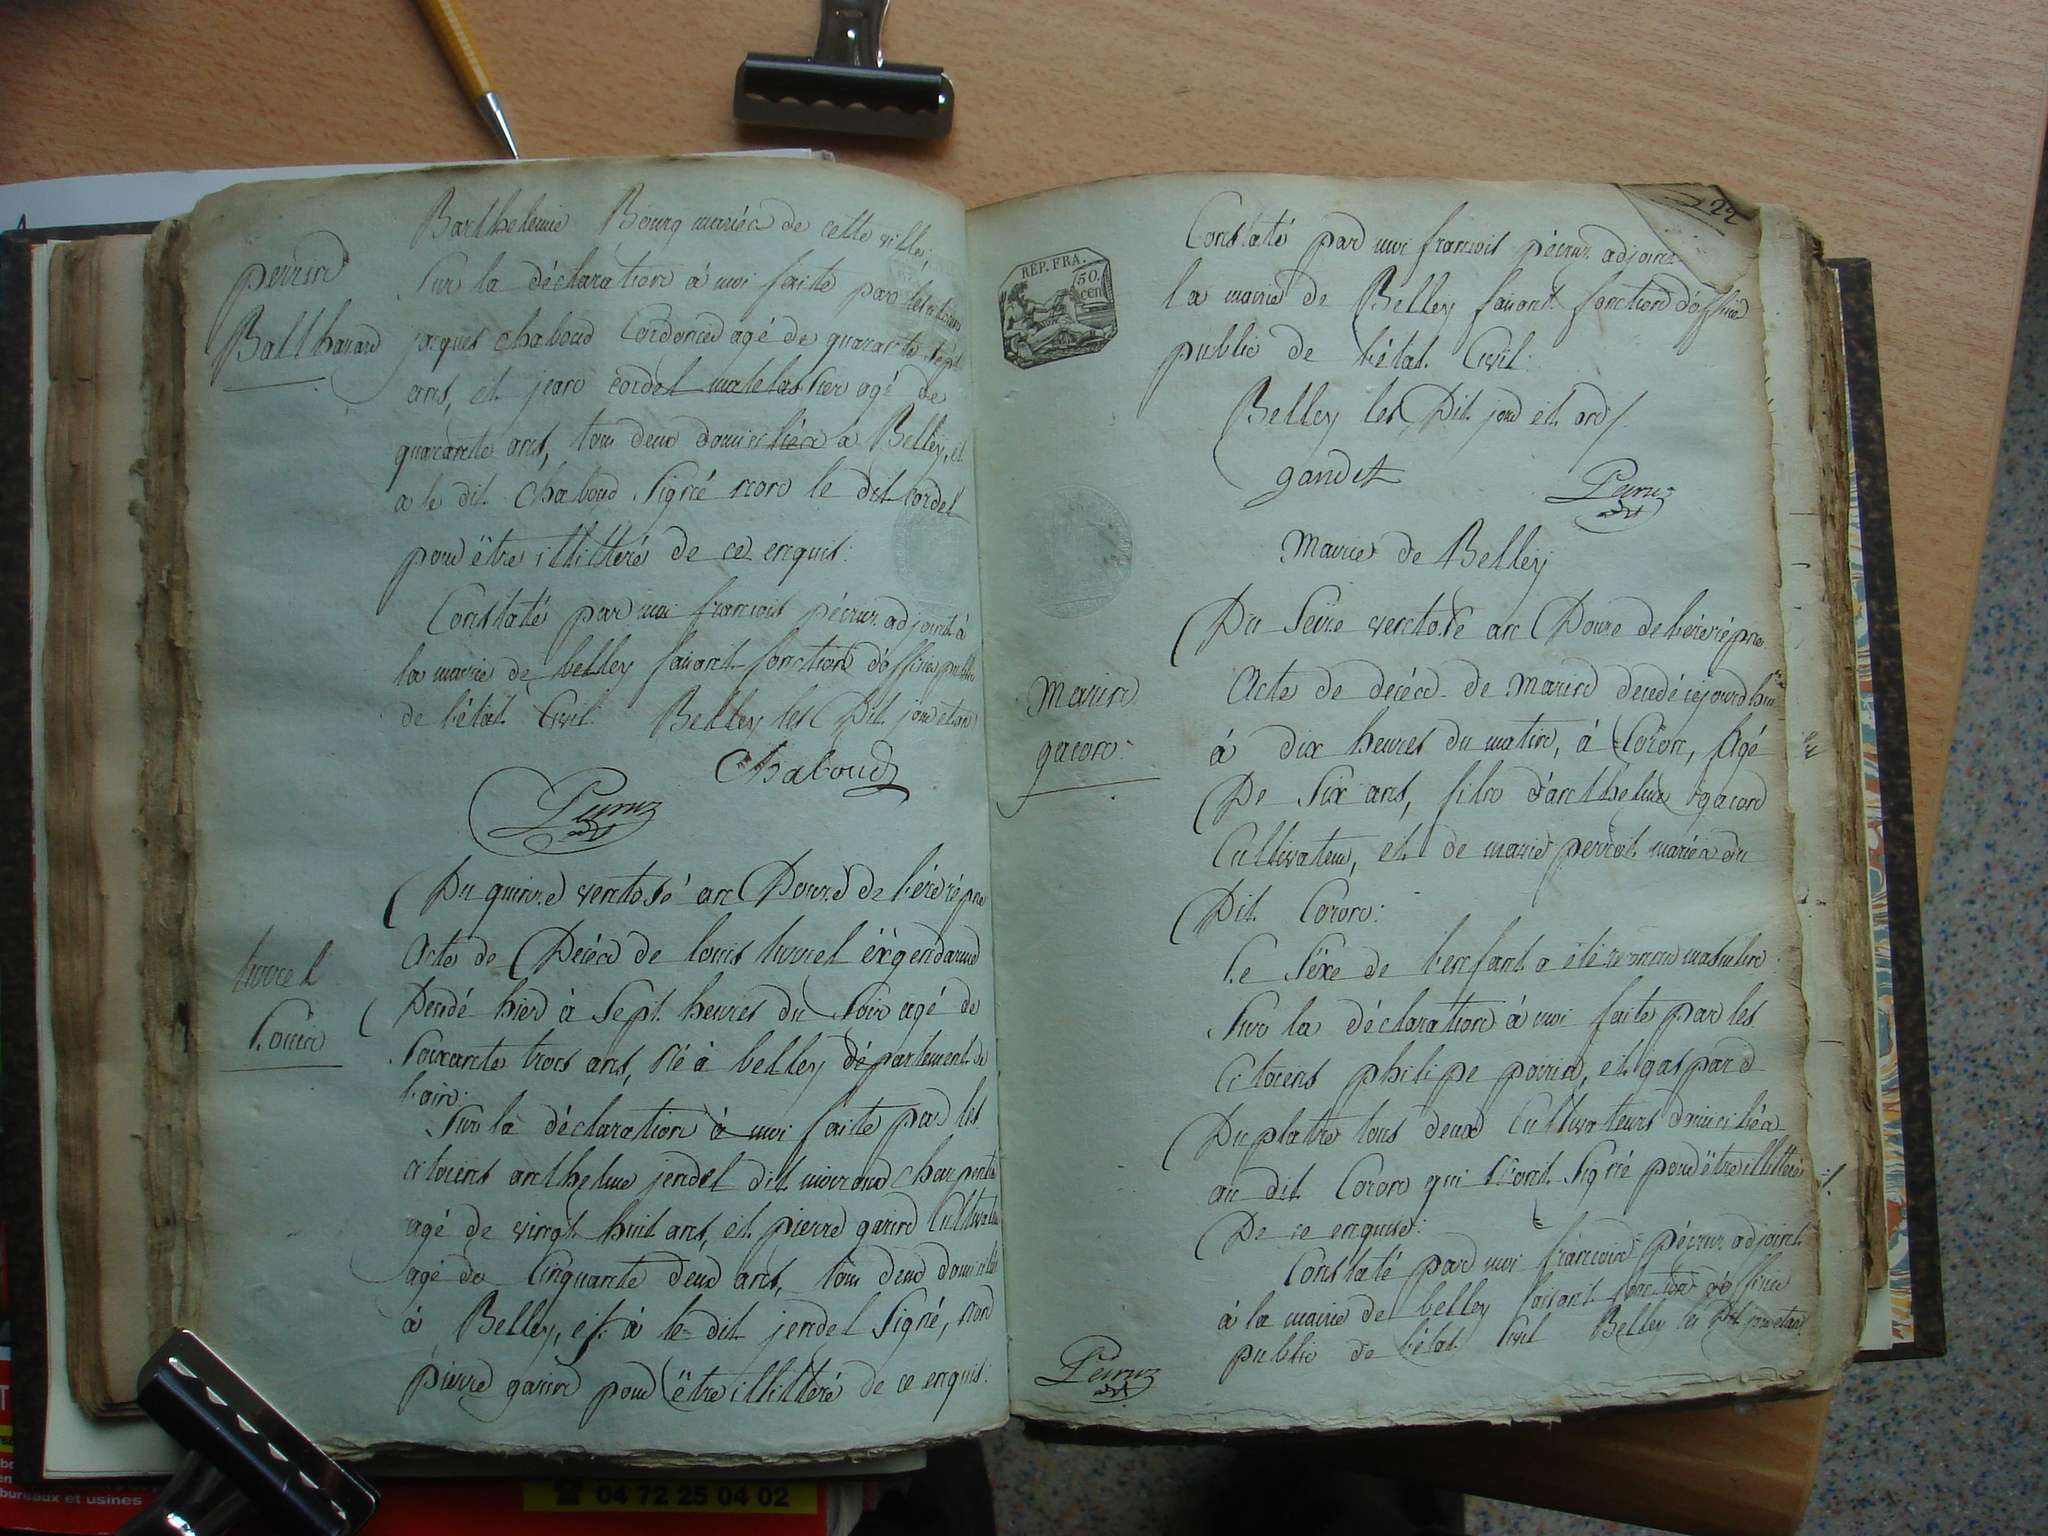 Barthelemie Bourg mariéa de cette ville,
perrin
Balthazard
Sur la déclaration à moi faite par les citoiens
jacques Chaboud Cordonier agé de quarante sept
ans, et jean cordel matelassier agé de
quarante ans, tous deux domicilier à Belley, et
a le dit Chaboud Signé non le dit cordel
pour être illitteré de ce enquit:
Constaté par moi francois pécruz adjoint à
la mairie de belley faisant fonction d'officie public
de l'état Civil Belley les Dit jour et an
Chaboud
Du quinze ventose an Douze de l'ére répne
turrel
Louis
Acte de Décéd de louis turrel éxgendarme
Decedé hier à Sept heures du Soir agé de
Soixante trois ans, né à belley département de
l'ain:
Sur la déclaration à moi faite par les
citoiens anthelme jendel dit moirand charpentie
agé de vingt huit ans, et pierre garin Cultivateur
agé de Cinquante deux ans, tous deux domicilié
à Belley, et à le dit jendel Signé, non
pierre garin pour être illitteré de ce enquis:
22
RÉP. FRA.
50.
cen
Constaté par moi francois pécruz adjoint
la mairie de Belley faisant fonction d'officie
public de l'état Civil:
Belley les Dit jour et an/.
gandet
Mairie de Belley
Du Seize ventose an Douze de l'ére répne
marin
gacon:
Acte de decéd de marin decedé cejourd'hui
à dix heures du matin, à Coron, Agé
De Six ans, fils d'anthelme gacon
Cultivateur, et de marie perret mariéa du
Dit Coron:
Le Séxe de l'enfant a été reconnu masculin
Sur la déclaration à moi faite par les
Citoiens philipe poirin, et gaspard
Duplatre tous deux Cultivateurs domicilié
au dit Coron qui n'ont Signé pour être illitteré
De ce enquise:
Constaté par moi francois pécruz adjoint
à la mairie de belley faisant fonction d'officie
public de l'état Civil Belley les Dit jour et an
bureaux et usines
☎ 04 72 25 04 02